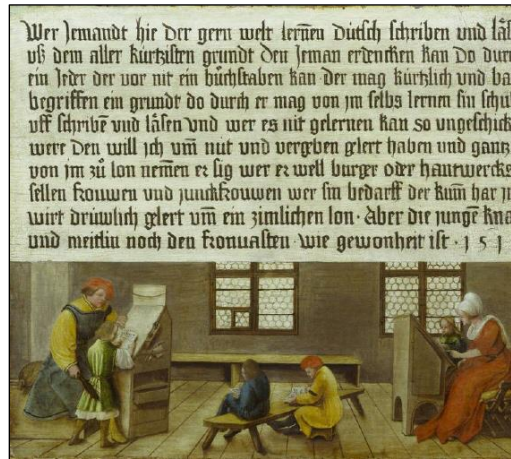 Wer Jemandt hie der gern welt lernen Dütsch schriben und
uß dem aller kürtzisten grundt den Jeman erdencken kan Do
ein Jeder der vor nit ein büchstaben kan der mag kürtzlich und
begriffen ein grundt do durch er mag von jm selbs lernen sin
uff schribē vnd läsen Vnd wer es nit gelernen kan so
were Den will jch vm̄ nüt und vergeben glert haben und gantz
von jm zů lon nemen er sig wer er well burger oder
sellen frouwen und junckfrouwen wer sin bedarff der kum̄ har
wirt drüwlich glert vm̄ ein zimlichen lon · Aber die junge
und meitlin noch den fronuasten wie gewonheit ist · 1 5 1